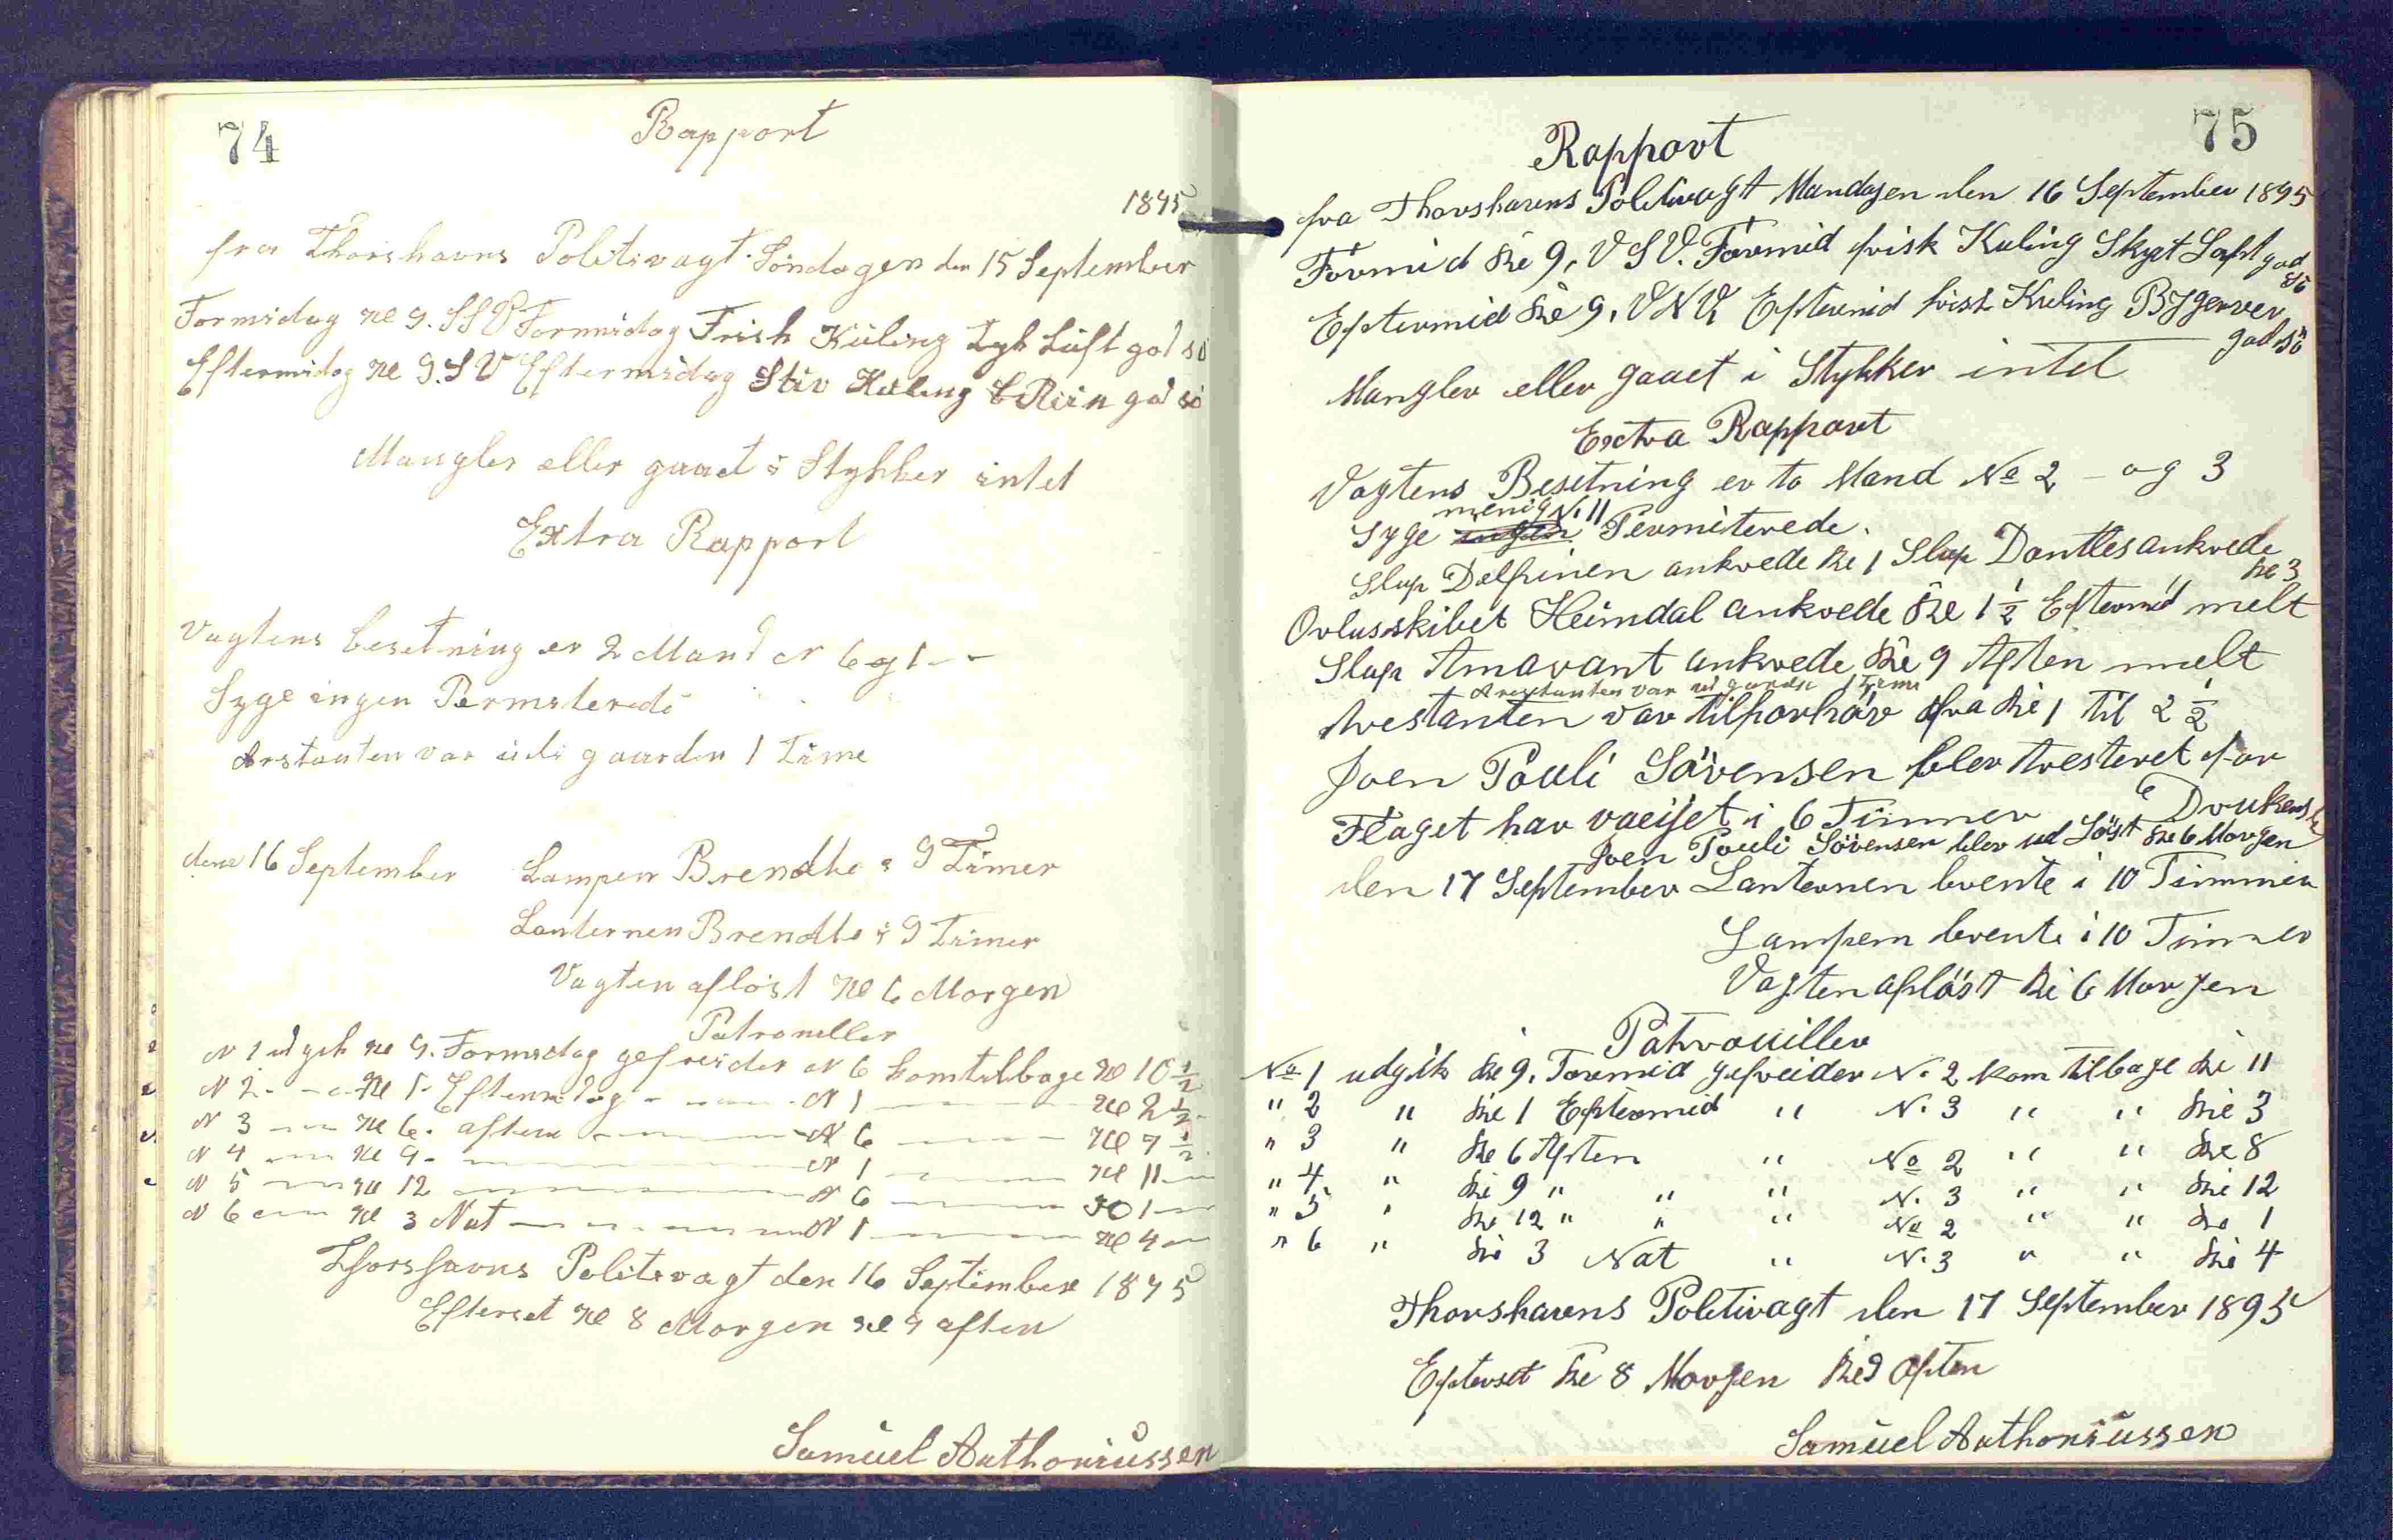 74
Rapport
1895
fra Thorshavns Politivagt Söndagen den 15 September
Formidag Kl 9. SSV Formidag Frisk Küling Tyk Lüft god sö
Eftermidag Kl 9. SV Eftermidag Stiv Kuling & Rein god sö
Mangler eller gaaet i Stykker intet
Extra Rapport
Vagtens besetning er 2 Mand N 6 og 1
Syge ingen Permiterede
Arstanten var üdi gaarden 1 Time
dene 16 September Lampen Brendte i 9 Timer
Lanternen Brendte i 9 Timer
Vagten aflöst Kl 6 Morgen
Patroneller
N 1 udgik Kl 9. Formidag gefreider N 6 kom tilbage Kl 10 1/2
N 2 Kl 1 Eftermidag N 1 Kl 2 1/2
N 3 Kl 6. aften N 6 Kl 7 1/2
N 4 Kl 9 N 1 Kl 11
N 5 Kl 12 N 6 Kl 1
N 6 Kl 3 Nat N 1 Kl 4
Thorshavns Politivagt den 16 September 1895
Efterset Kl 8 Morgen Kl 9 aften
Samüel Anthoniüssen
75
Rapport
fra Thorshavens Politivagt Mandagen den 16 September 1895
Formid Kl 9, VSV. Formid frisk Kuling Skyet Luft god sö
Eftermid Kl 9, VNV, Eftermid frisk Kuling Bygerver god sö
Mangler eller gaaet i Stykker intet
Extra Rapport
Vagtens Besetning er to Mand No 2 - og 3
Syge menig N. 11 Permiterede.
Slup Delfinen ankrede Kl 1 Slup Dantles ankrede Kl 3
Orlusskibet Heimdal ankrede Kl 1 1/2 Eftermid melt
Slup Amarant ankrede Kl 9 Aften melt
Arestanten var ud gaarde 1 Time
Arestanten var tilforhör fra Kl 1 til 2 1/2
Joen Pouli Sörensen blev Aresteret for Drukensk
Flaget har vaeiset i 6 Timer
Joen Pouli Sörensen blev ud Löst Kl 6 Morgen
den 17 September Lanternen brente i 10 Timmer
Lampem brente i 10 Timer
Vagten aflöst Kl 6 Morgen
Patrouiller
No 1 udgik Kl 9. Formid gefreider N. 2 kom tilbage Kl 11
" 2 " Kl 1 Eftermid " N. 3 " " Kl 3
" 3 " Kl 6 Aften " No 2 " " Kl 8
" 4 " Kl 9 " " " N. 3 " " Kl 12
" 5 " Kl 12 " " " No 2 " " Kl 1
" 6 " Kl 3 Nat " N. 3 " " Kl 4
Thorshavens Politivagt den 17 September 1895
Efterset Kl 8 Morgen Kl 9 Aften
Samüel Anthoniüssen